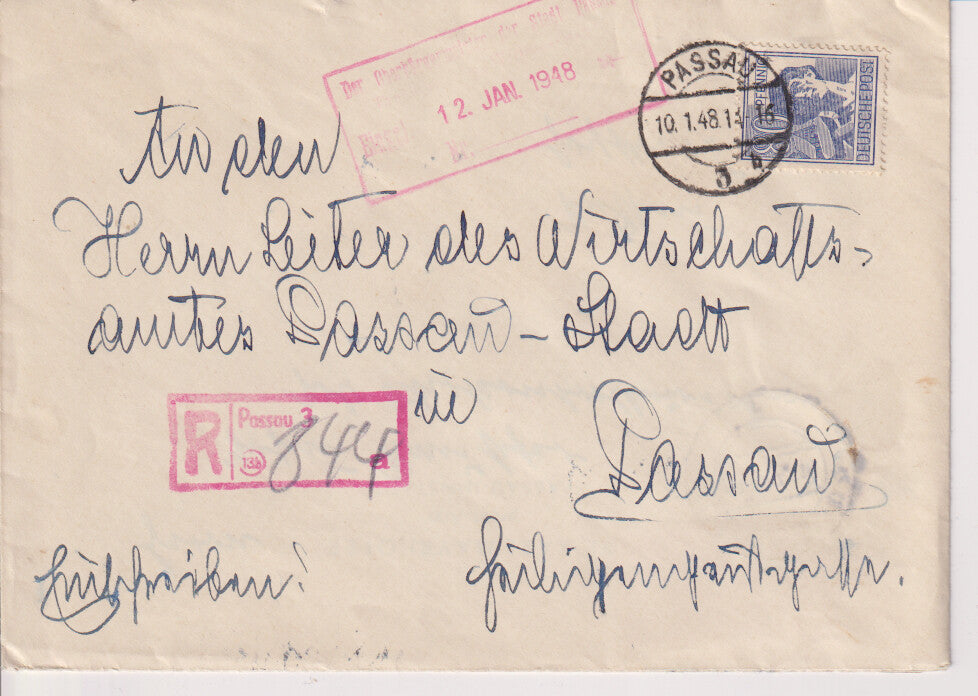 Der Oberbürgermeister der Stadt Passau
12. JAN. 1948
PASSAU
10.1.48.13 16
80 PFENNIG
DEUTSCHE POST
An den
Herrn Leiter des Wirtschafts-
amtes Passau-Stadt
in
R
Passau 3
13b
844
a
Passau
Einschreiben!
Heiligengeistgasse.